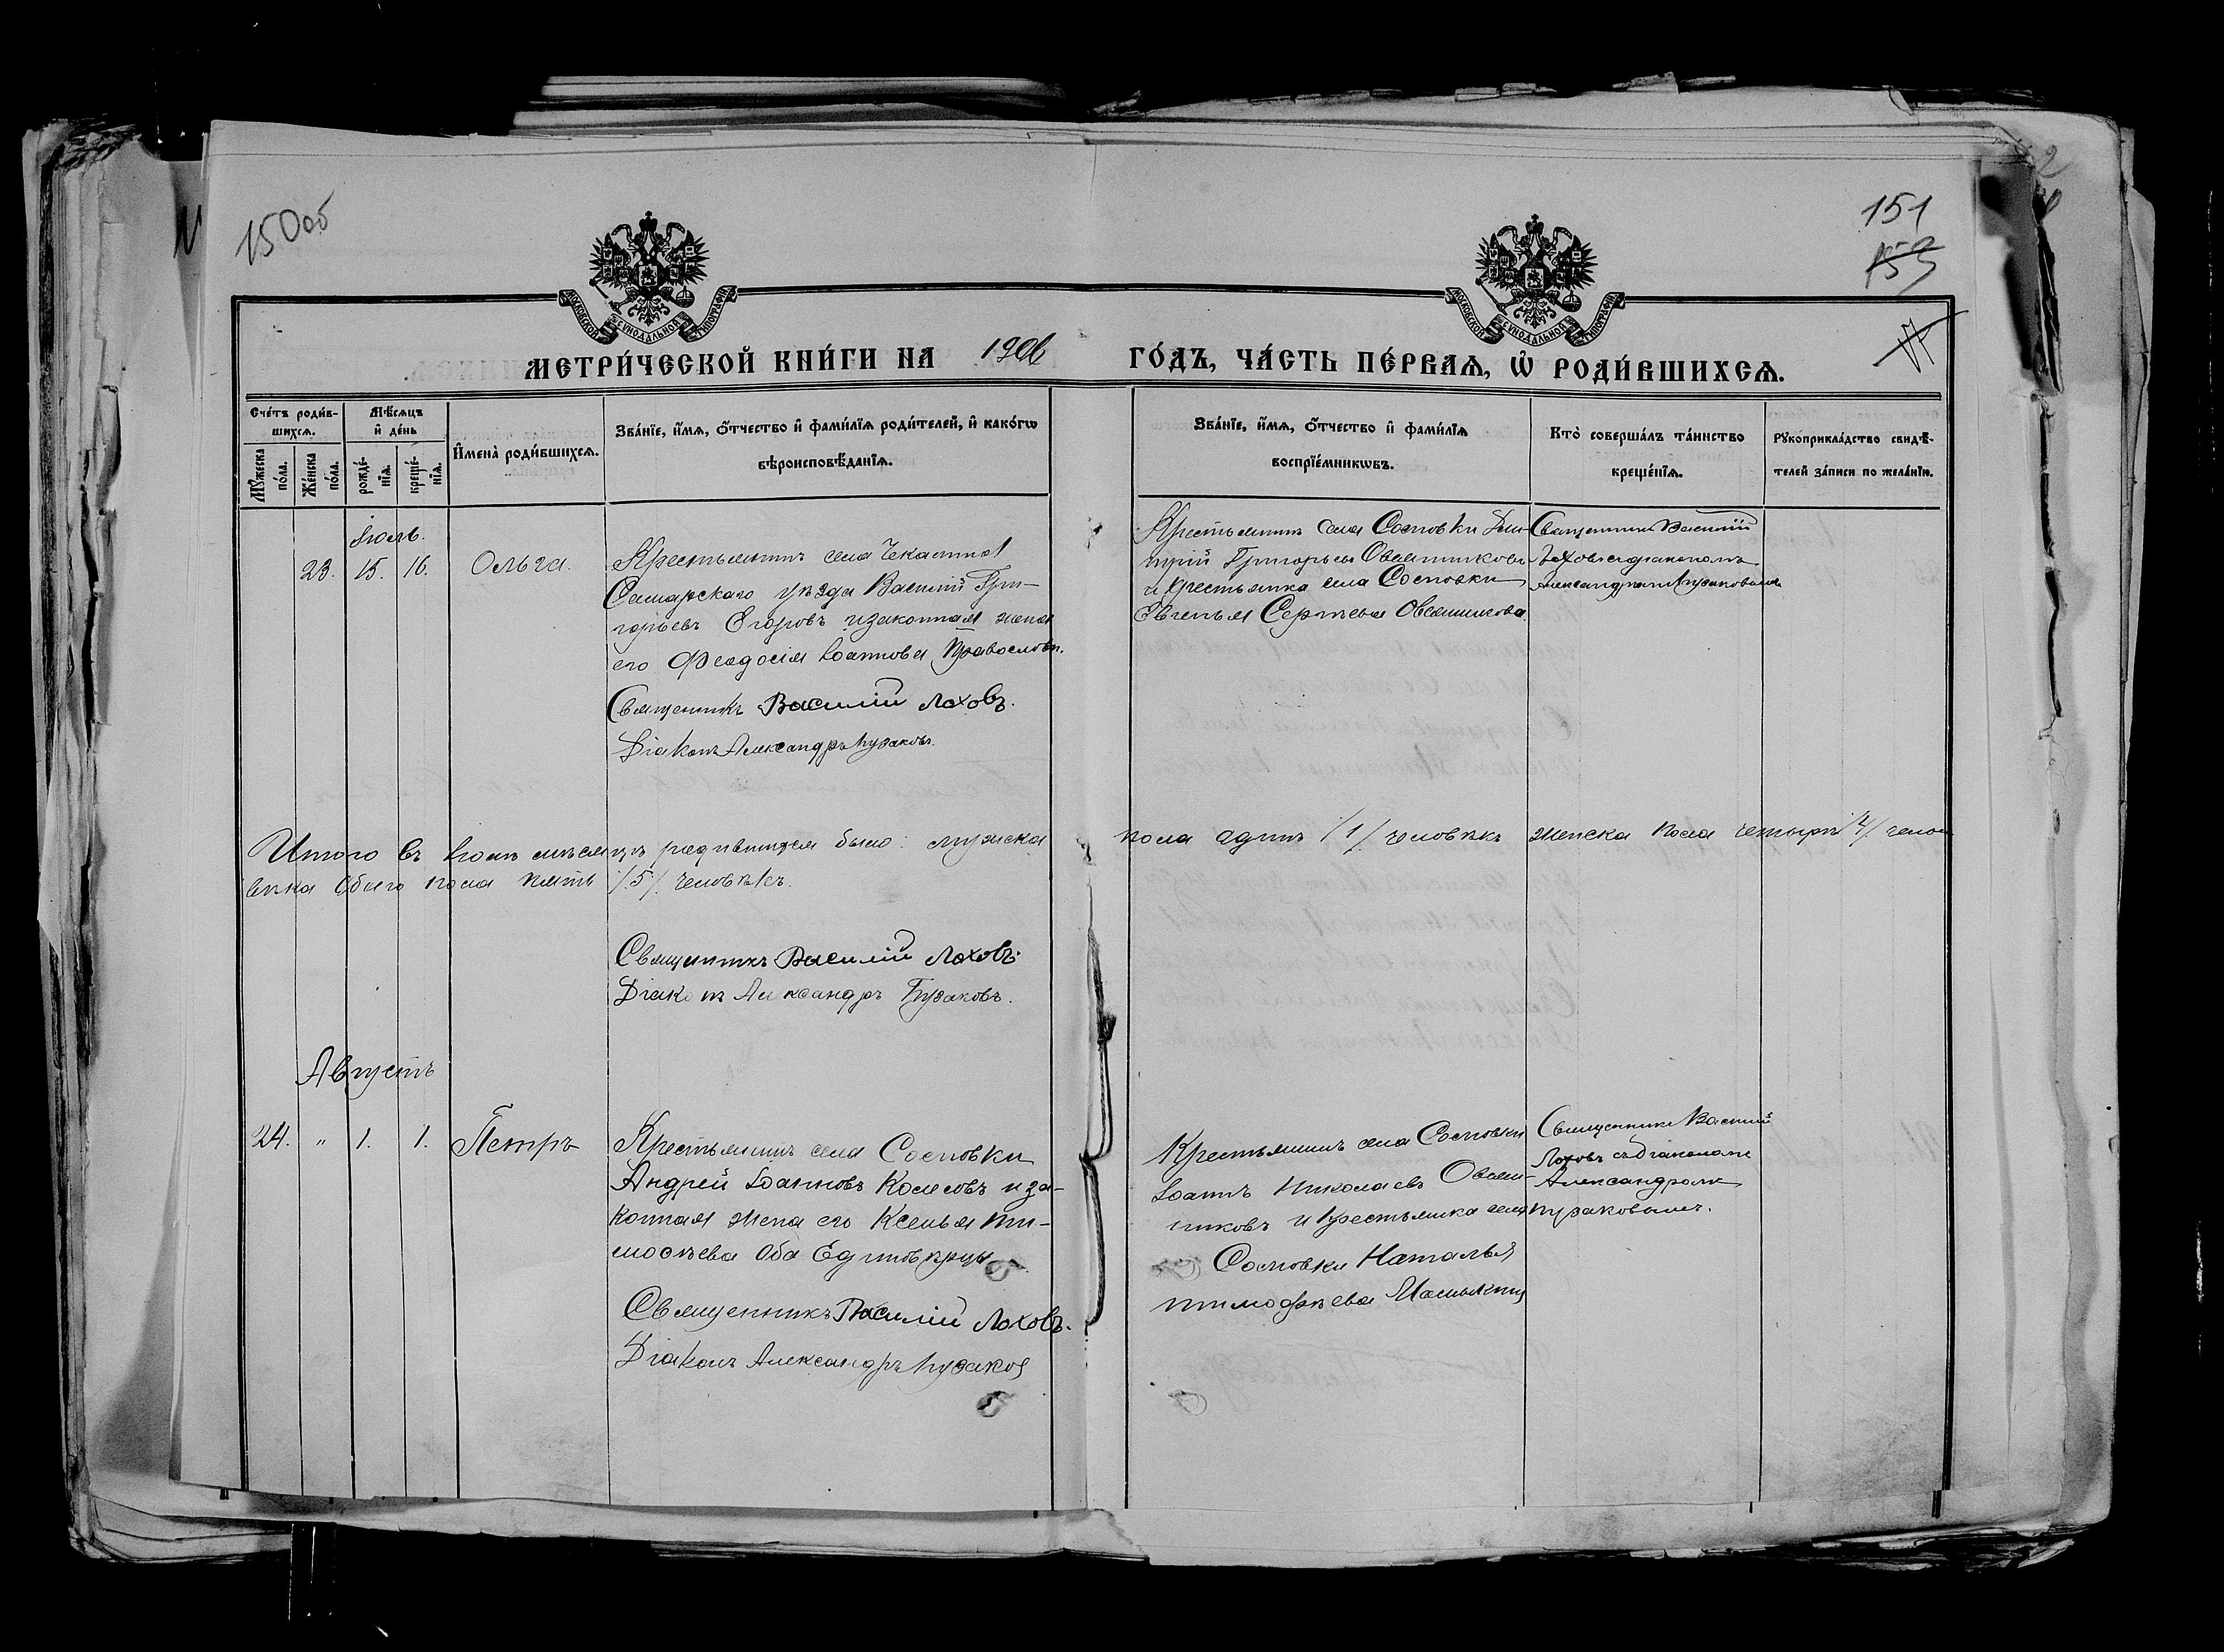 150об
151
153
МОСКОВСКОЙ СѴНОДАЛЬНОЙ ТИПОГРАФІИ
МОСКОВСКОЙ СѴНОДАЛЬНОЙ ТИПОГРАФІИ
МЕТРИ́ЧЕСКОЙ КНИ́ГИ НА 1906 ГО́ДЪ, ЧА́СТЬ ПЕ́РВАѦ, Ѽ РОДИ́ВШИХСѦ.
Сче́тъ роди́в-
шихсѧ.
Мꙋ́жеска по́ла.
Же́нска по́ла.
Мѣ́сѧцъ и де́нь
рожде́-нїѧ.
креще́-нїѧ.
Имена̀ роди́вшихсѧ.
Зва́нїе, и́мѧ, ѻ́тчество и фами́лїѧ роди́телей, и како́гѡ
вѣроисповѣ́данїѧ.
Зва́нїе, и́мѧ, ѻ́тчество и фами́лїѧ
воспрїе́мникѡвъ.
Кто̀ соверша́лъ та́инство
креще́нїѧ.
Рꙋкоприкла́дство свидѣ́-
телей за́писи по жела́нїю.
Іюль.
23. 15. 16. Ольга.
Крестьянинъ села Чекалина
Самарскаго уѣзда Василій Гри-
горьевъ Егоровъ и законная жена
его Феодосія Іоаннова Православн.
Священникъ Василій Лоховъ.
Діаконъ Александръ Пузаковъ.
Крестьянинъ села Сосновки Дми-
трій Григорьевъ Овсянниковъ
и крестьянка села Сосновки
Евгенья Сергѣева Овсянникова.
Священникъ Василій
Лоховъ съ діакономъ
Александромъ Пузаковымъ
Итого въ Іюлѣ мѣсяцѣ родившихся было: мужска пола одинъ /1/ человѣкъ женска пола четыре /4/ чело-
вѣка Обоего пола пять /5/ человѣкъ.
Священникъ Василій Лоховъ.
Діаконъ Александръ Пузаковъ.
Августъ
24. " 1. 1. Петръ
Крестьянинъ села Сосновки
Андрей Іоанновъ Колесовъ и за-
конная жена его Ксенья Ти-
моѳеева Оба Единовѣрцы
Священникъ Василій Лоховъ.
Діаконъ Александръ Пузаковъ
Крестьянинъ села Сосновки
Іоаннъ Николаевъ Овсян-
никовъ и Крестьянка села
Сосновки Наталья
Тимофѣева
Священникъ Василій
Лоховъ съ Діакономъ
Александромъ
Пузаковымъ.